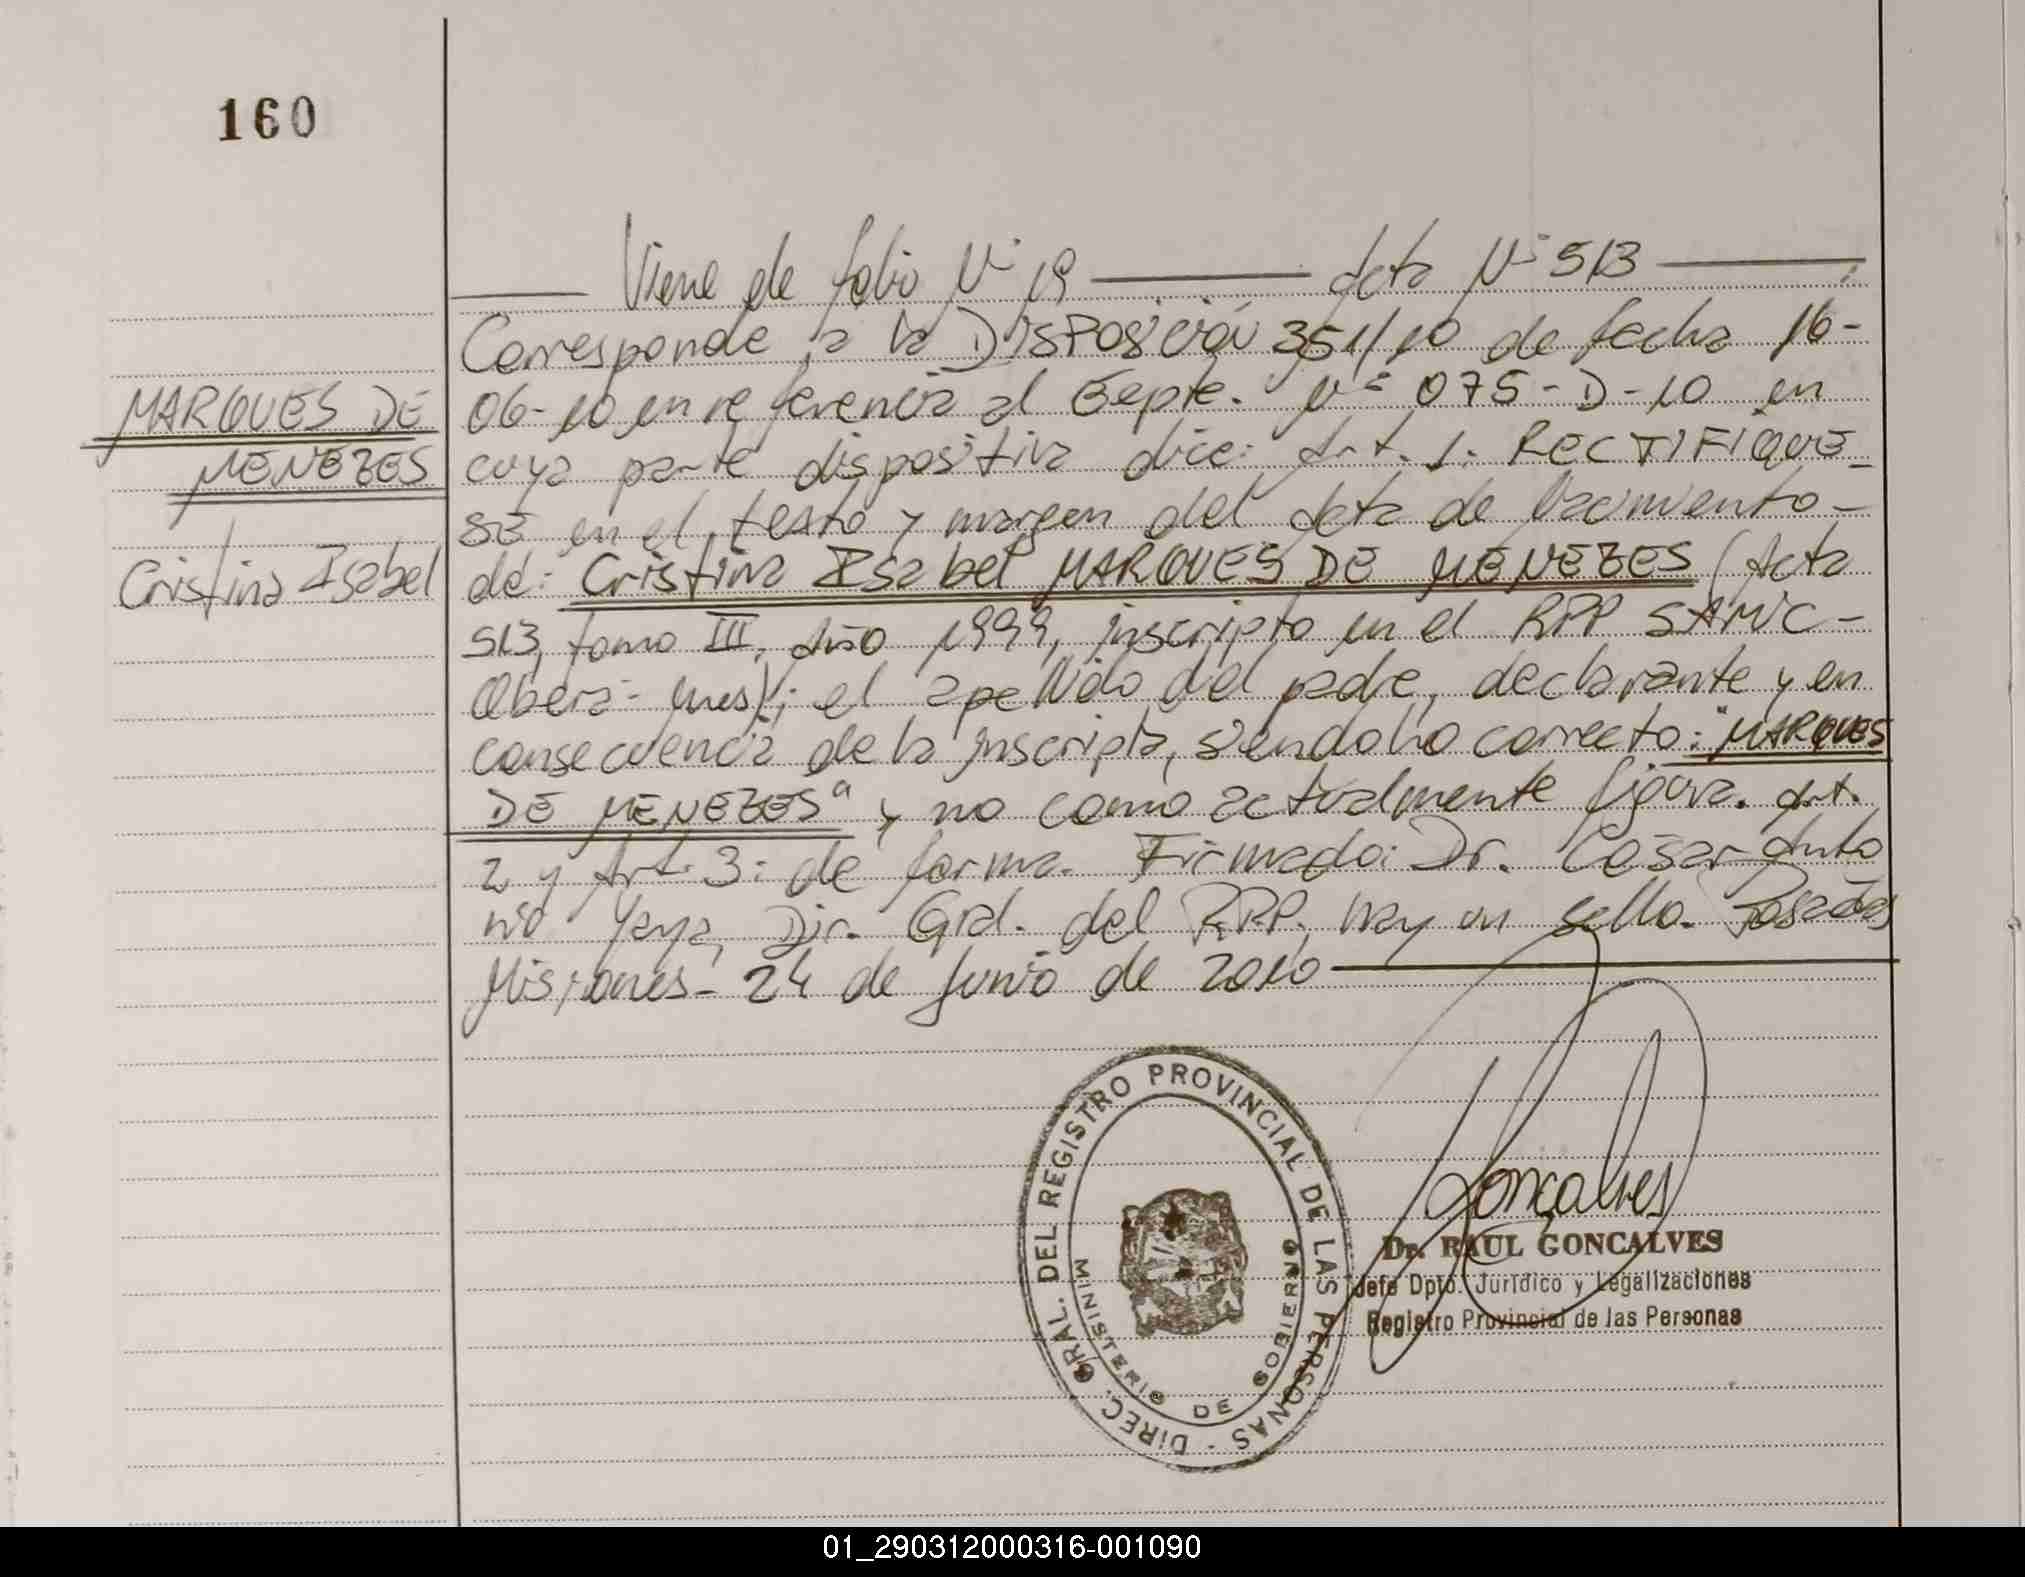 160
Viene de folio Nº 19 Acta Nº 513
Corresponde a la DISPOSICIÓN 351/10 de fecha 16-
06-10 en referencia al Expte. Nº 075-D-10 en
MARQUES DE
MENEZES
cuya parte dispositiva dice: Art. 1: RECTIFIQUE-
SE en el texto y margen del Acta de Nacimiento-
Cristina Isabel
de: Cristina Isabel MARQUES DE MENEZES (Acta
513, tomo III, Año 1999, inscripto en el RPP SAMIC-
Oberá- Mnes); el apellido del padre, declarante y en
consecuencia de la inscripta, siendo lo correcto: "MARQUES
DE MENEZES" y no como actualmente figura. Art.
2 y Art. 3: de forma. Firmado: Dr. César Anto
nio Yaya, Dir. Gral. del RPP. hay un sello. Posadas
Misiones- 24 de Junio de 2010
DIREC. GRAL. DEL REGISTRO PROVINCIAL DE LAS PERSONAS -
MINISTERIO DE GOBIERNO
Gonçalves
Dr. RAUL GONCALVES
Jefe Dpto. Jurídico y Legalizaciones
Registro Provincial de las Personas
01_290312000316-001090